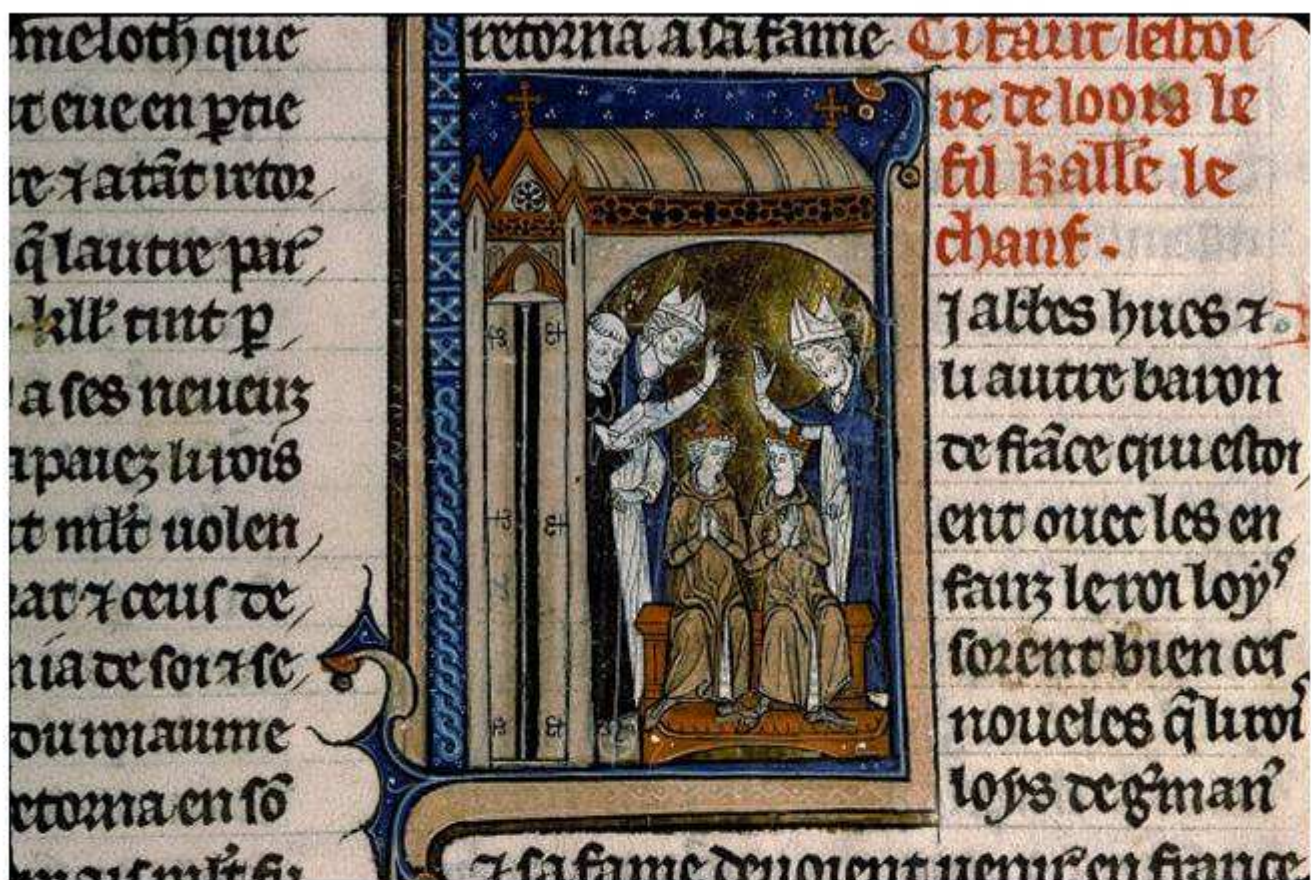 meloth que
t eue en ptie
re ⁊ atāt retor
q̄ lautre par
kłł tint p
a ses neueuz
apaiez li rois
t mlt uolen
rat ⁊ ceus de
nia de soi ⁊ se
du roiaume
etorna en sō
retorna a sa fame
Ci faut lestoi
re de loois le
fil kalle le
chauf.
J abbes hues ⁊
li autre baron
de frāce qui estoi
ent ouec les en
fanz le roi loys
sorent bien ces
noueles q̄ li roi
loys de gman
⁊ sa fame deuoient uenir en france